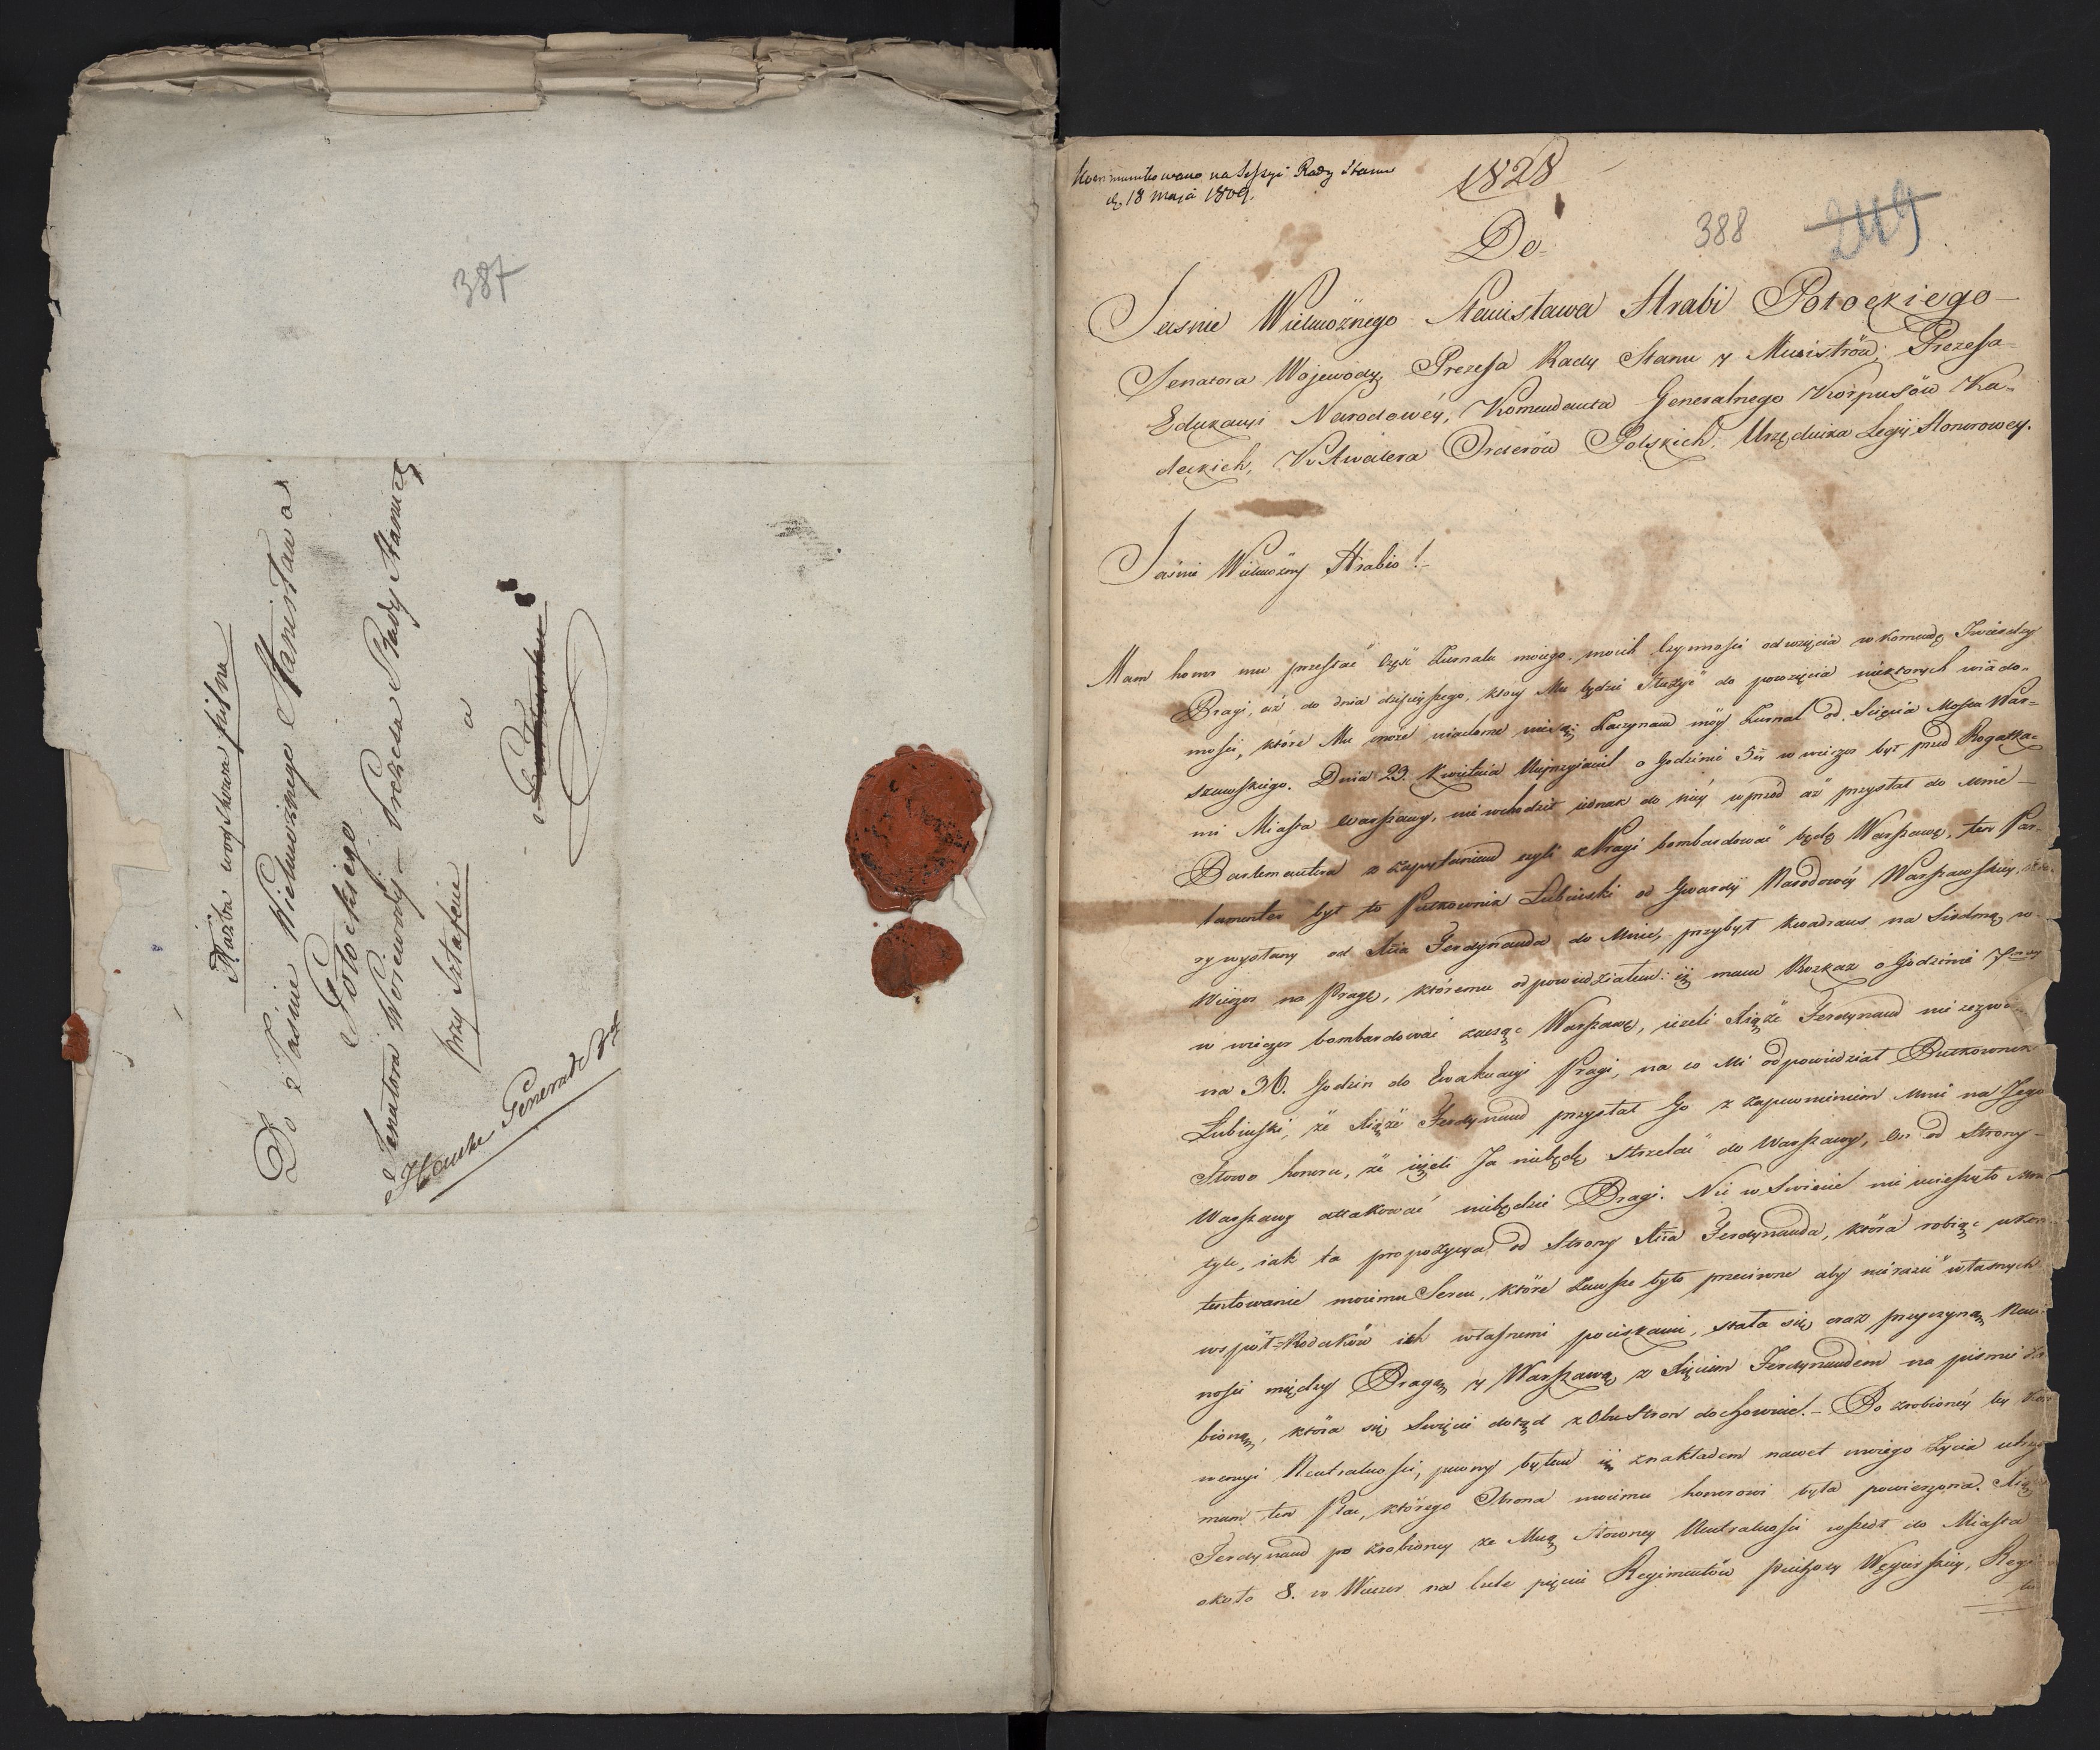 387
Służba woyskowa pilna
Do Jaśnie Wielmożnego Stanisława
Potockiego
Senatora Woiewody Prezesa Rady Stanu
przy Sztafecie
a
Hauke Generał
Kommunikowano na Sessyi Rady Stanu
d. 18 Maja 1809.
1828
388
249
Do
Jasnie Wielmożnego Stanisława Hrabi Potockiego
Senatora Wojewody, Prezesa Rady Stanu y Ministrów, Prezesa
Edukacyi Narodowéy, Komendanta Generalnego Korpusów Ka-
deckich, Kawalera Orderów Polskich, Urzędnika Legij Honorowey.
Jaśnie Wielmożny Hrabio!
Mam honor mu przesłać Część Żurnalu moiego, moich Czynnosci od wzięcia w Komendę Twierdzy
Pragi, aż do dnia dzisieyszego, który Mu będzie służyć do powzięcia niektorych wiado-
mości, które Mu może wiadome nie są; Zaczynam móy Żurnal od Sciecia Mostu War-
szawskiego. Dnia 23. Kwietnia Nieprzyiaciel o Godzinie 5tej w wieczor był przed Rogatka-
mi Miasta Warszawy, nie wchodził iednak do niéy wprzód aż przysłał do mnie
Parlementera z zapytaniem czyli z Pragi bombardować będę Warszawę, ten Par-
lamenter był to Pułkownik Łubieński od Gwardÿi Narodowéy Warszawskiey, któ-
ry wysłany od Xcia Ferdynanda do Mnie, przybył kwadrans na Siodmą w
Wieczor na Pragę, któremu odpowiedziałem: iż mam Rozkaz o Godzinie 7mey
w wieczor bombardować zacząć Warszawę, ieżeli Xiąże Ferdynand nie zezwo-
na 36. Godzin do Ewakuacyi Pragi, na co Mi odpowiedział Pułkownik
Łubieński, że Xiąże Ferdynand przysłał Go z zapewnieniem Mnie na Jego
Słowo honoru, że ieżeli Ja niebędę Strzelać do Warszawy, On od Strony
Warszawy attakować niebędzie Pragi. Nic w Swiecie nie ucieszyło Mnie
tyle, iak ta propozycya od Strony Xcia Ferdynanda, która robiąc ukon-
tentowanie moiemu Sercu, które Zawsze było przeciwne aby nierazić własnych
współ-Rodaków ich własnemi pociskami, stała się oraz przyczyną Neu-
nosci między Pragą y Warszawą z Xięciem Ferdynandem na pismie Zro-
bioną, która się Swięcie dotąd z Obu Stron dochowuie. – Po zrobioney tey Kon-
wencyi Neutralnosci, pewny byłem iż z nakładem nawet moiego Życia utrzy-
mam ten Plac, którego Obrona moiemu honorowi była powierzona. Xiąże
Ferdynand po zrobioney ze Mną Słowney Neutralności wszedł do Miasta
około 8. w Wieczor na Czele pięciu Regimentów Piechoty Węgierskiey, Regi-